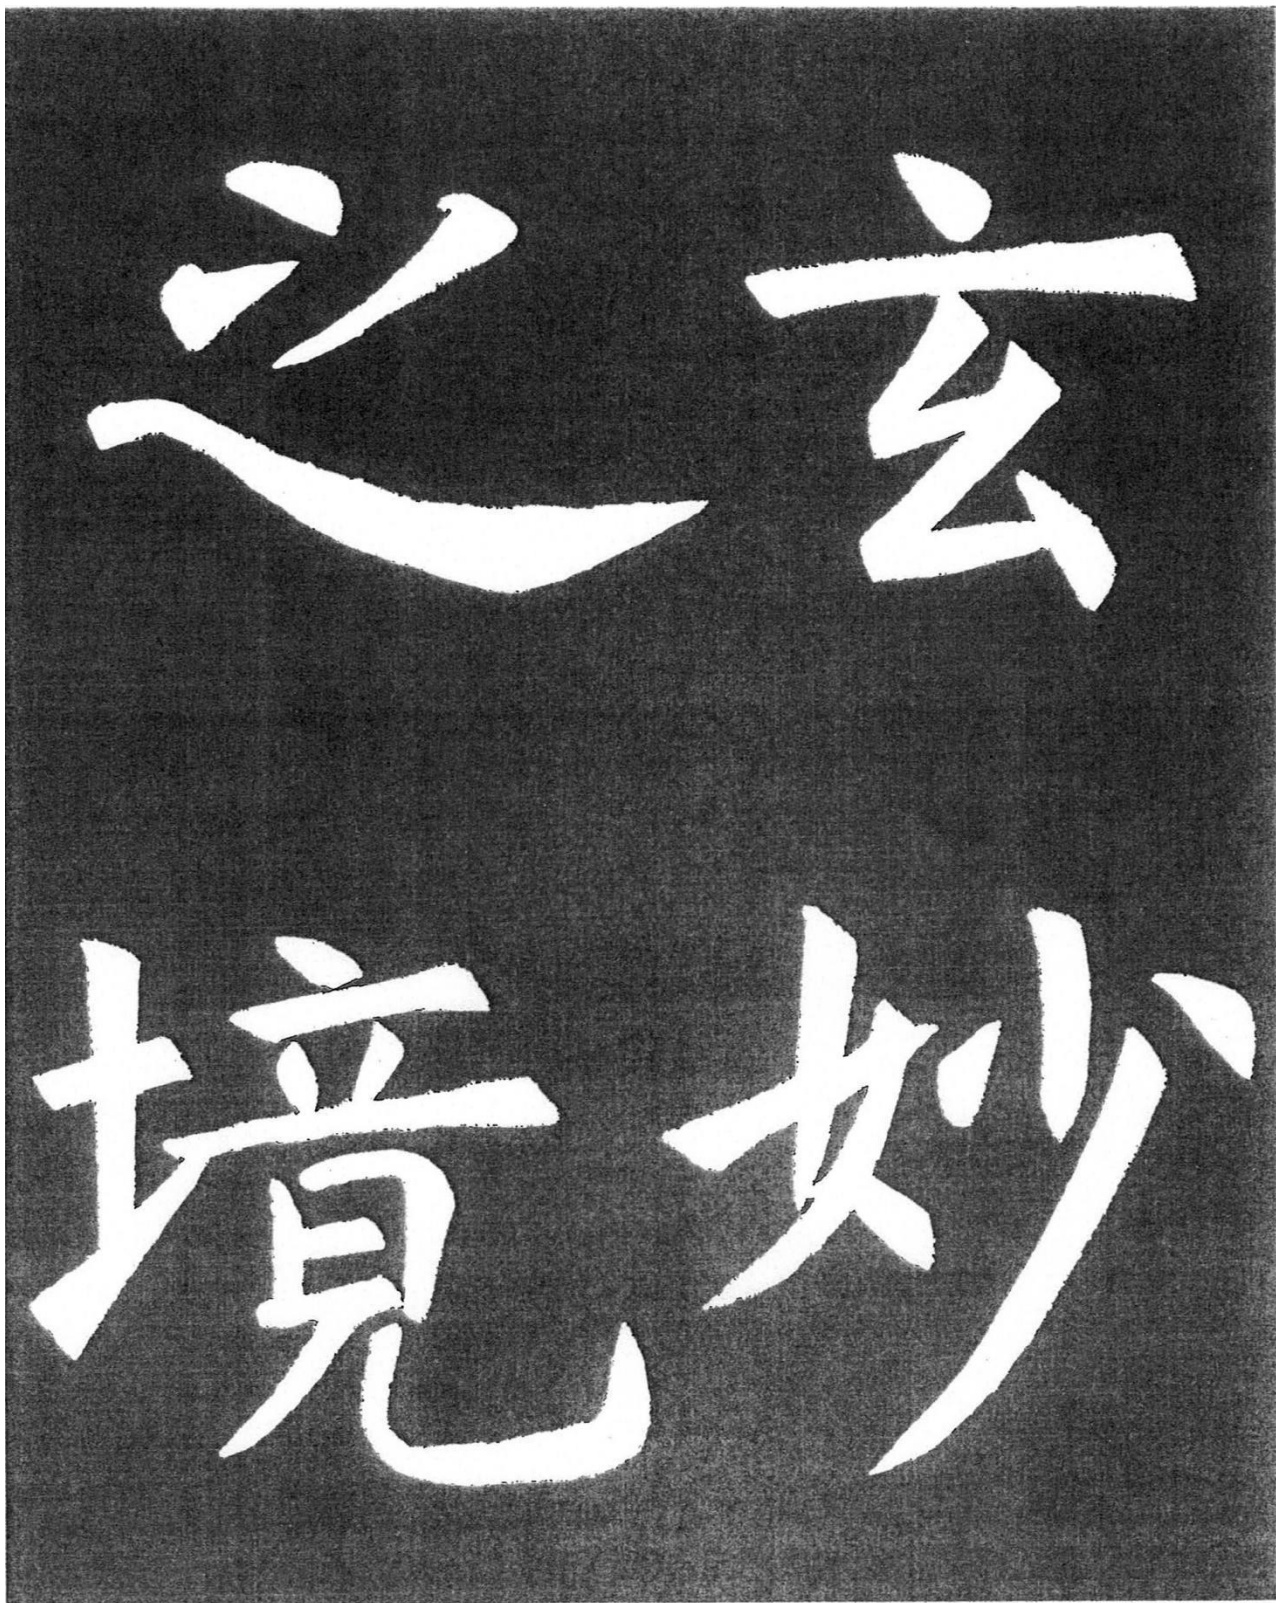 玄妙
之境